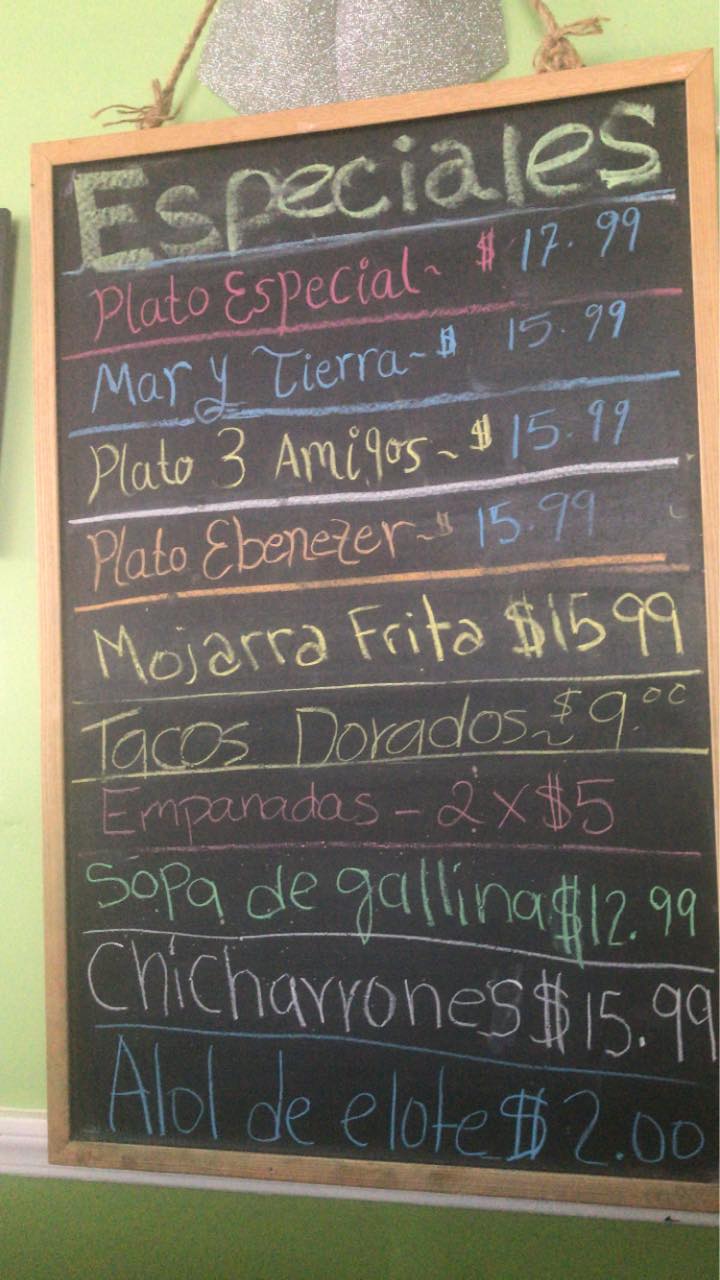 Especiales
Plato Especial~ $ 17.99
Mar y Tierra~$ 15.99
Plato 3 Amigos~$ 15.99
Plato Ebenezer~$ 15.99
Mojarra Frita $15 99
Tacos Dorados~$9.00
Empanadas - 2 x $5
Sopa de gallina $12.99
Chicharrones $15.99
Atol de elote $2.00